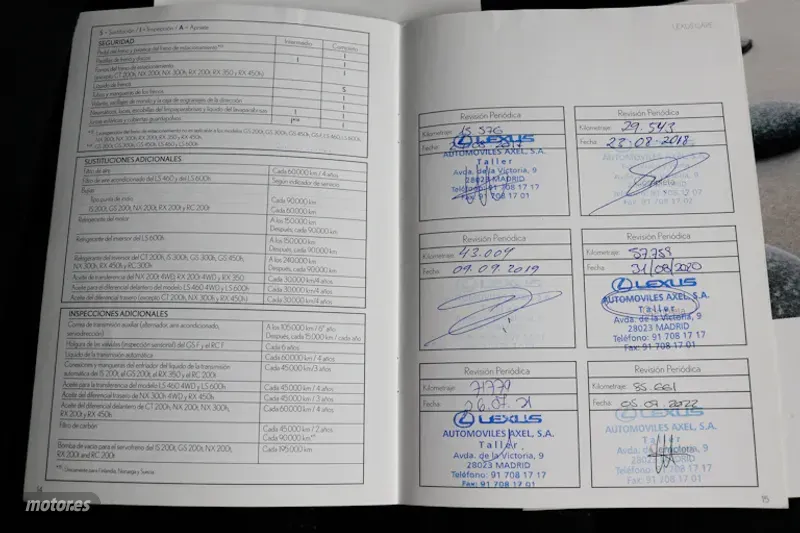 S = Sustitución / I = Inspección / A = Apriete
SEGURIDAD
Intermedio
Completo
Pedal del freno y palanca del freno de estacionamiento*¹
I
Pastillas de freno y discos
I
I
Forros del freno de estacionamiento
(excepto CT 200h, NX 200t, NX 300h, RX 200t, RX 350 y RX 450h)
I
Líquido de frenos
S
Tubos y mangueras de los frenos
I
Volante, varillajes de mando y la caja de engranajes de la dirección
I
Neumáticos, luces, escobillas del limpiaparabrisas y líquido del lavaparabrisas
I
I
Juntas esféricas y cubiertas guardapolvos
I
SUSTITUCIONES ADICIONALES
Filtro de aire
Cada 60.000 km / 4 años
Filtro de aire acondicionado del LS 460 y del LS 600h
Según indicador de servicio
Bujías
Tipo punta de iridio
Cada 90.000 km
IS 200t, GS 200t, NX 200t, RX 200t y RC 200t
Cada 60.000 km
Refrigerante del motor
A los 150.000 km
Después, cada 90.000 km
Refrigerante del inversor del LS 600h
A los 150.000 km
Después, cada 90.000 km
Refrigerante del inversor del CT 200h, IS 300h, GS 300h, GS 450h,
NX 300h, RX 450h y RC 300h
A los 240.000 km
Después, cada 90.000 km
Aceite de transferencia del NX 200t 4WD, RX 200t 4WD y RX 350
Cada 30.000 km/4 años
Aceite para el diferencial delantero del modelo LS 460 4WD y LS 600h
Cada 30.000 km/4 años
Aceite del diferencial trasero (excepto CT 200h, NX 300h y RX 450h)
Cada 30.000 km/4 años
INSPECCIONES ADICIONALES
Correa de transmisión auxiliar (alternador, aire acondicionado,
servodirección)
A los 105.000 km / 6º año
Después, cada 15.000 km / cada año
Holgura de las válvulas (inspección sensorial) del GS F y el RC F
Cada 6 años
Líquido de la transmisión automática
Cada 60.000 km / 4 años
Conexiones y mangueras del enfriador del líquido de la transmisión
automática del IS 200t, el GS 200t, el RX 350 y el RC 200t
Cada 45.000 km/3 años
Aceite para la transferencia del modelo LS 460 4WD y LS 600h
Cada 45.000 km / 4 años
Aceite del diferencial trasero de NX 300h 4WD y RX 450h
Cada 45.000 km / 3 años
Aceite del diferencial delantero de CT 200h, NX 200t, NX 300h,
RX 200t y RX 450h
Cada 60.000 km / 4 años
Filtro de carbón
Cada 45.000 km / 2 años
Cada 90.000 km**
Bomba de vacío para el servofreno del IS 200t, GS 200t, NX 200t,
RX 200t and RC 200t
Cada 195.000 km
14
motor.es
LEXUS CARE
Revisión Periódica
Kilometraje: 15 376
Fecha
LEXUS
AUTOMOVILES AXEL, S.A.
Taller
Avda. de la Victoria, 9
28023 MADRID
Teléfono: 91 708 17 17
Fax: 91 708 17 01
Revisión Periódica
Kilometraje: 29.543
Fecha: 22-08-2018
Revisión Periódica
Kilometraje: 43.004
Fecha 09.09.2019
Revisión Periódica
Kilometraje: 57.753
Fecha 31/08/2020
LEXUS
AUTOMOVILES AXEL, S.A.
Taller
Avda. de la Victoria, 9
28023 MADRID
Teléfono: 91 708 17 17
Fax: 91 708 17 01
Revisión Periódica
Kilometraje: 71779
Fecha 26.07.21
LEXUS
AUTOMOVILES AXEL, S.A.
Taller
Avda. de la Victoria, 9
28023 MADRID
Teléfono: 91 708 17 17
Fax: 91 708 17 01
Revisión Periódica
Kilometraje: 85.661
Fecha 05.07.2022
LEXUS
AUTOMOVILES AXEL, S.A.
Taller
Avda. de la Victoria, 9
28023 MADRID
Teléfono: 91 708 17 17
Fax: 91 708 17 01
15